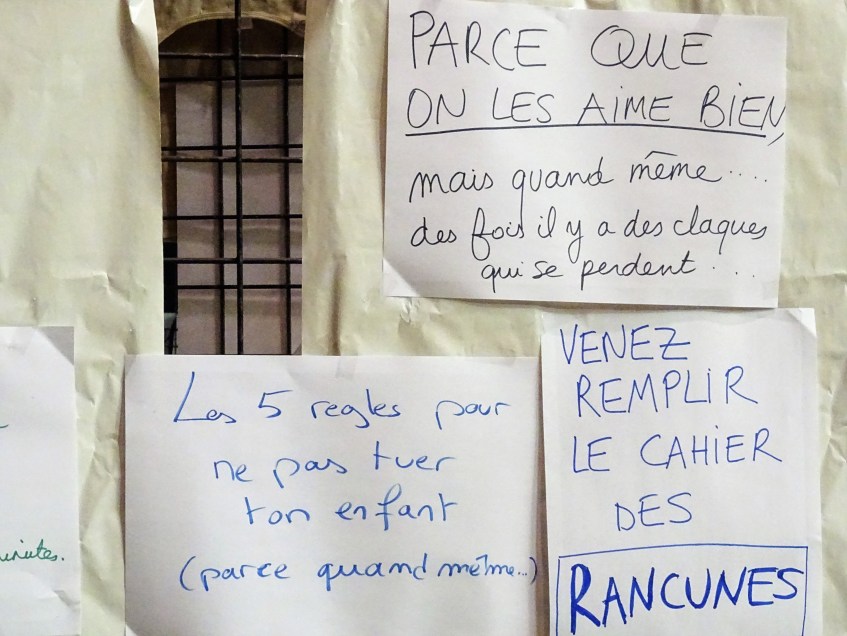 PARCE QUE
ON LES AIME BIEN,
mais quand même....
des fois il y a des claques
qui se perdent....
Les 5 regles pour
ne pas tuer
ton enfant
(parce quand même...)
VENEZ
REMPLIR
LE CAHIER
DES
RANCUNES